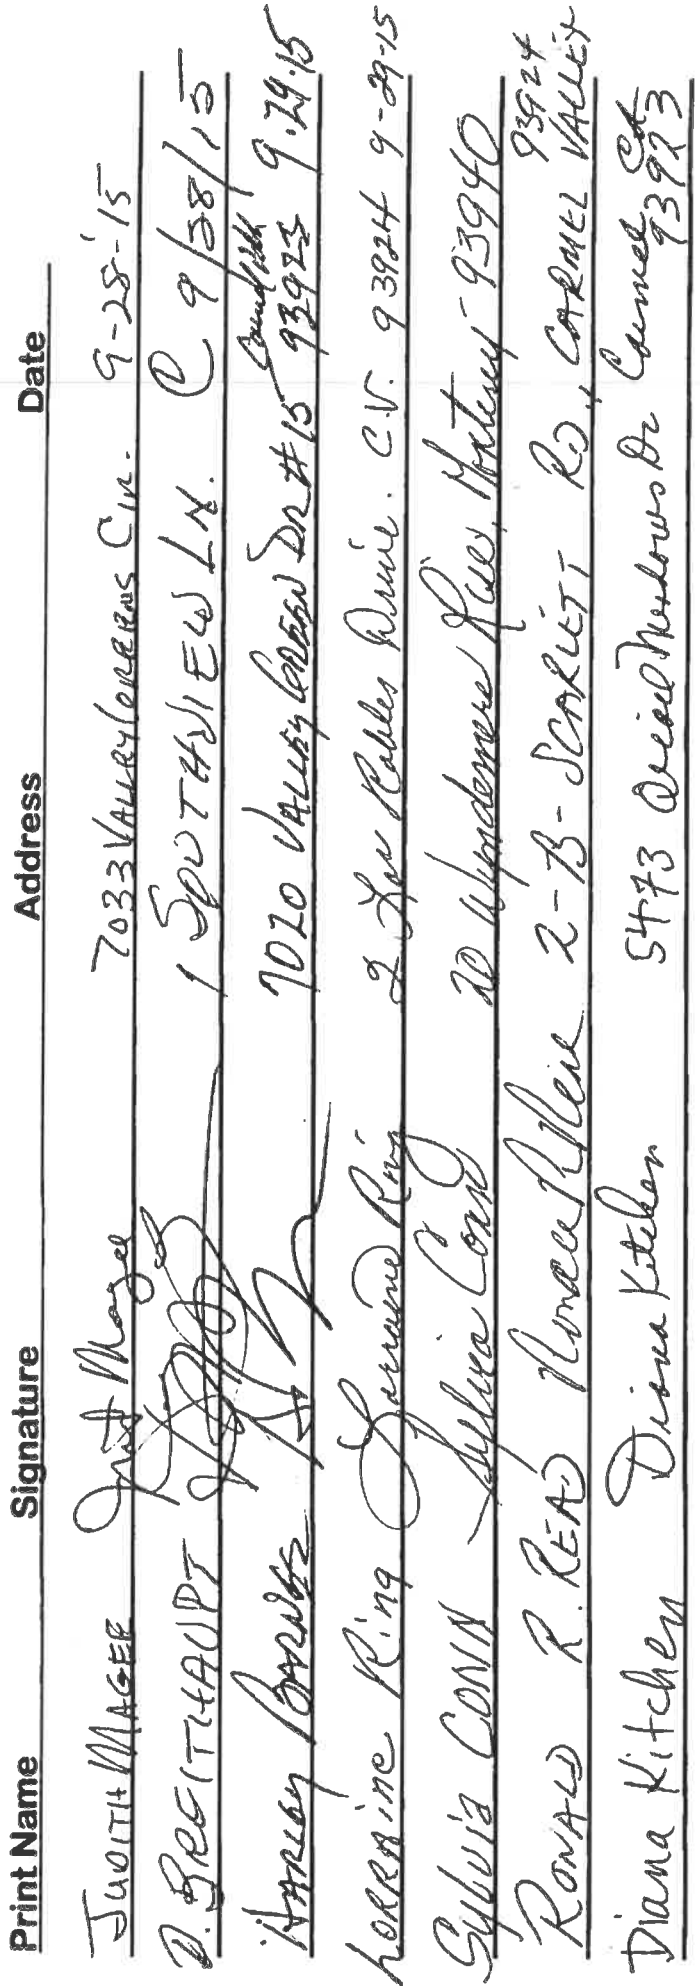 Print Name Signature Address Date
JUDITH MAGEE Judith Magee 7033 VALLEY GREENS CIR. 9-28-15
D. BREITHAUPT 1 SOUTHVIEW LN. C 9/28/15
HARLEY BARNES 7020 VALLEY GREEN DR #15 93923 9.29.15
LORRAINE Ring Lorraine Ring 2 Los Robles Drive. C.V. 93924 9-29-15
Sylvia CONN Sylvia Conn 20 Wyndemere Monterey 93940
RONALD R. READ 2-B-SCARLETT RD., CARMEL VALLEY 93924
Diana Kitchen Diana Kitchen 5473 Meadows Dr Carmel Ca 93923